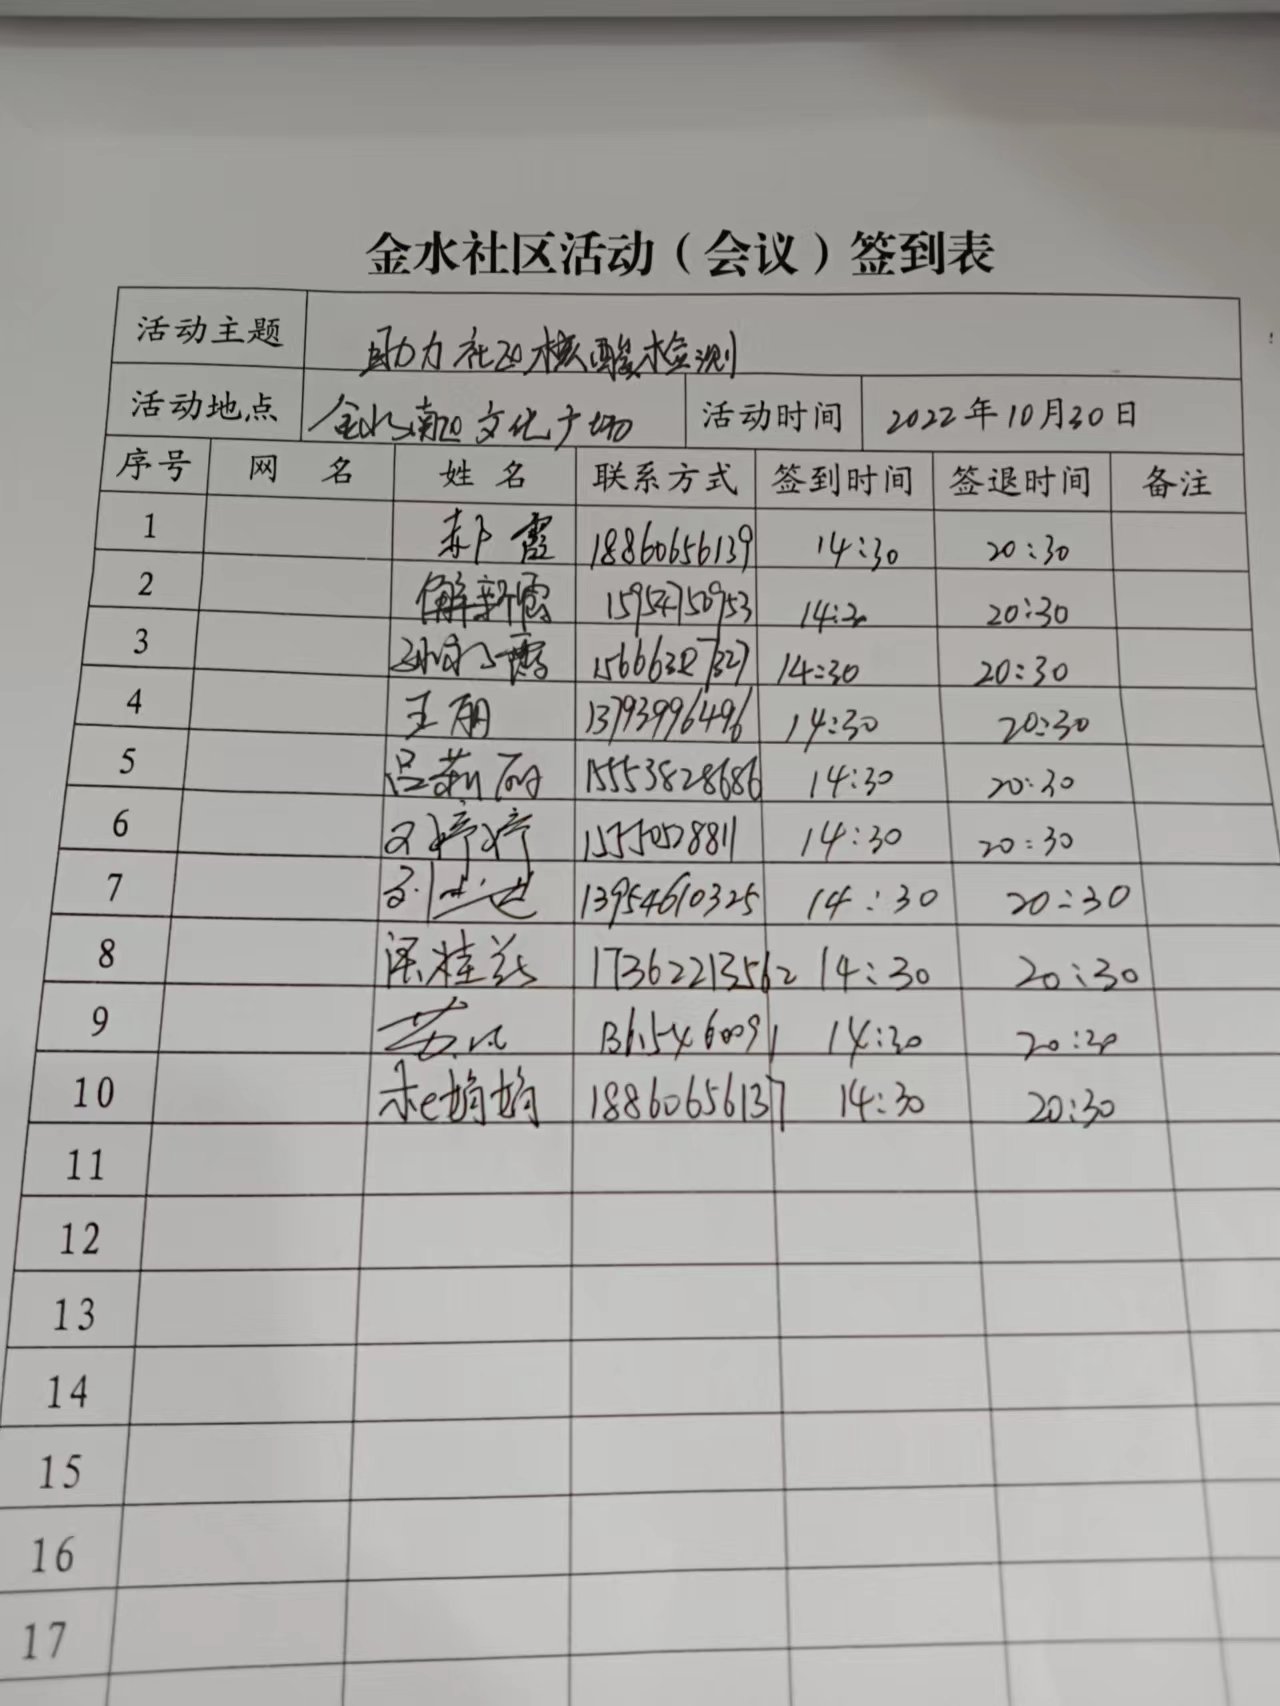 金水社区活动（会议）签到表
活动主题 助力社区核酸检测
活动地点 金水南区文化广场 活动时间 2022年10月30日
序号 网名 姓名 联系方式 签到时间 签退时间 备注
1 郝霞 18860656139 14:30 20:30
2 解新霞 15954750953 14:30 20:30
3 14:30 20:30
4 王丽 13793996496 14:30 20:30
5 吕莉丽 15553828686 14:30 20:30
6 婷婷 14:30 20:30
7 刘 13954610325 14:30 20:30
8 梁桂兰 17362213562 14:30 20:30
9 14:30 20:30
10 娟娟 18860656137 14:30 20:30
11
12
13
14
15
16
17